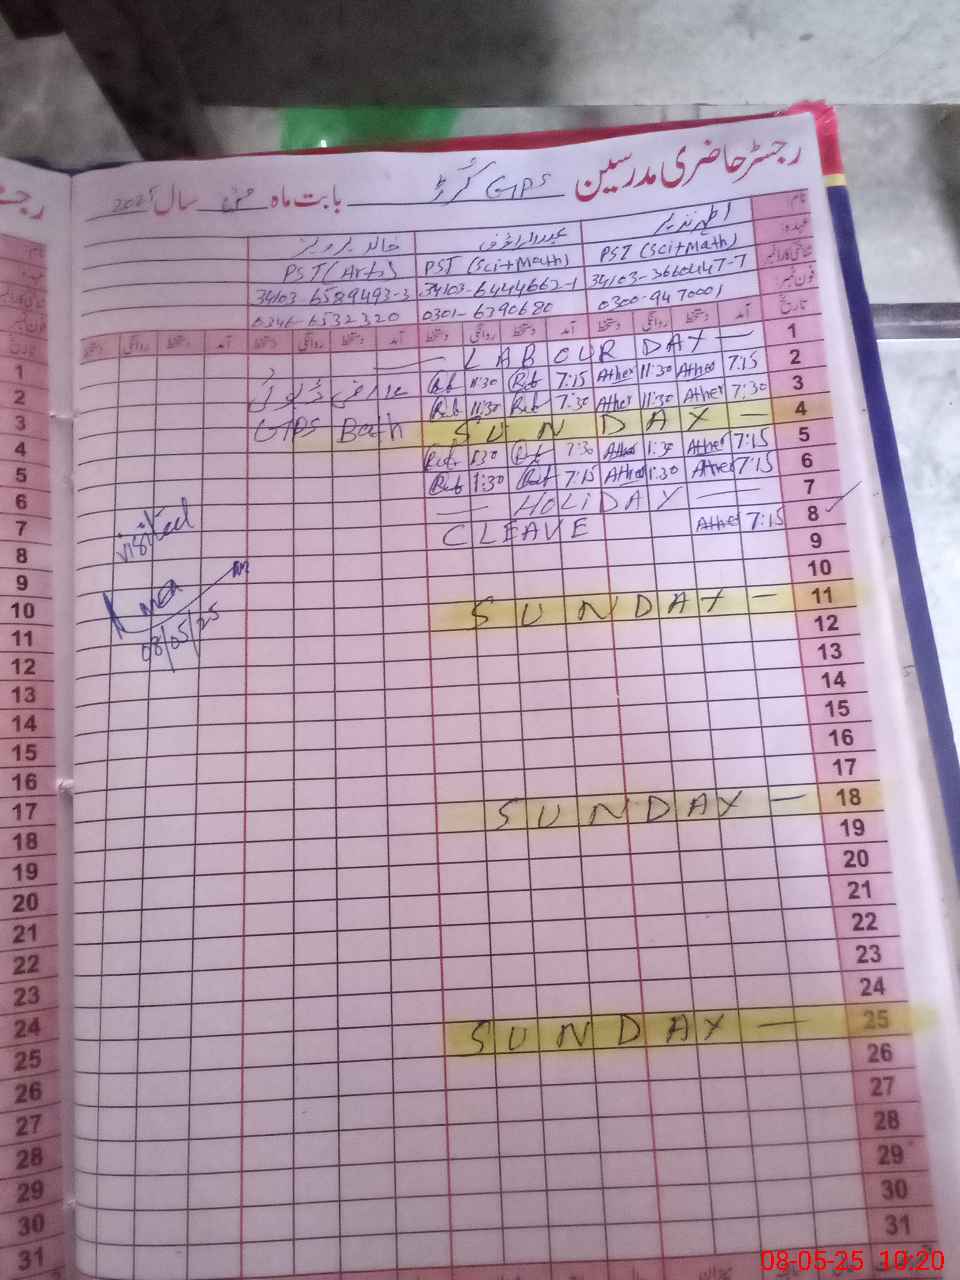 رجسٹر حاضری مدرسین GPS بابت ماہ مئی سال 2025
نام اطہر نذیر عبدالرؤف خالد پرویز
عہدہ PST (Sci+Math) PST (Sci+Math) PST (Arts)
شناختی کارڈ نمبر 34103-3660447-7 34103-6444662-1 34103-6589493-3
فون نمبر 0300-9470001 0301-6790680 0346-6532320
تاریخ آمد دستخط روانگی دستخط آمد دستخط روانگی دستخط آمد دستخط روانگی دستخط آمد دستخط روانگی دستخط
1 — LABOUR DAY —
2 7:15 Ather 11:30 Ather 7:15 Ruf 11:30 Ruf عارضی ڈیوٹی
3 7:30 Ather 11:30 Ather 7:30 Ruf 11:30 Ruf GPS Bath
4 SUNDAY —
5 7:15 Ather 1:30 Ather 7:30 Ruf 1:30 Ruf
6 7:15 Ather 1:30 Ather 7:15 Ruf 1:30 Ruf
7 — HOLIDAY —
8 7:15 Ather C LEAVE
9
10
11 SUNDAY —
12
13
14
15
16
17
18 SUNDAY —
19
20
21
22
23
24
25 SUNDAY —
26
27
28
29
30
31
visited
08/05/25
رجسٹر
1
2
3
4
5
6
7
8
9
10
11
12
13
14
15
16
17
18
19
20
21
22
23
24
25
26
27
28
29
30
31
08-05-25 10:20